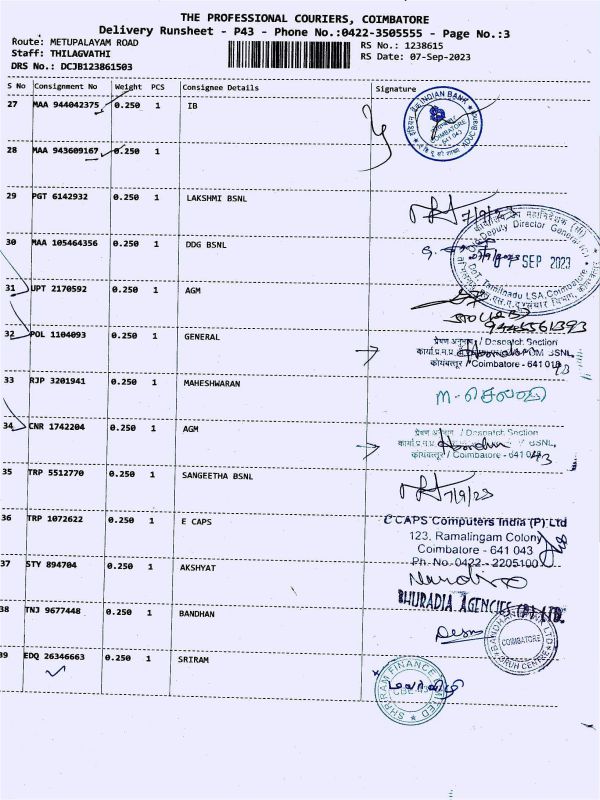 THE PROFESSIONAL COURIERS, COIMBATORE
Delivery Runsheet - P43 - Phone No.:0422-3505555 - Page No.:3
Route: METUPALAYAM ROAD
RS No.: 1238615
Staff: THILAGVATHI
RS Date: 07-Sep-2023
DRS No.: DCJB123861503
S No Consignment No Weight PCS Consignee Details Signature
27 MAA 944042375 0.250 1 IB
INDIAN BANK
COIMBATORE
641 043
28 MAA 943609167 0.250 1
29 PGT 6142932 0.250 1 LAKSHMI BSNL
7/9/23
30 MAA 105464356 0.250 1 DDG BSNL
Deputy Director General
07 SEP 2023
DoT, Tamilnadu LSA, Coimbatore
31 UPT 2170592 0.250 1 AGM
9442561393
32 POL 1104093 0.250 1 GENERAL
प्रेषण अनुभाग / Despatch Section
BSNL,
कोयंबत्तूर / Coimbatore - 641 0
33 RJP 3201941 0.250 1 MAHESHWARAN
M-செல்வி
34 CNR 1742204 0.250 1 AGM
/ Despatch Section
BSNL,
कोयंबत्तूर / Coimbatore - 641 043
35 TRP 5512770 0.250 1 SANGEETHA BSNL
7/9/23
36 TRP 1072622 0.250 1 E CAPS
CAPS Computers India (P) Ltd
123, Ramalingam Colony
Coimbatore - 641 043
Ph. No. 0422 - 2205100
37 STY 894704 0.250 1 AKSHYAT
BHURADIA AGENCIES (P) LTD.
38 TNJ 9677448 0.250 1 BANDHAN
COIMBATORE
39 EDQ 26346663 0.250 1 SRIRAM
SHRIRAM FINANCE LIMITED